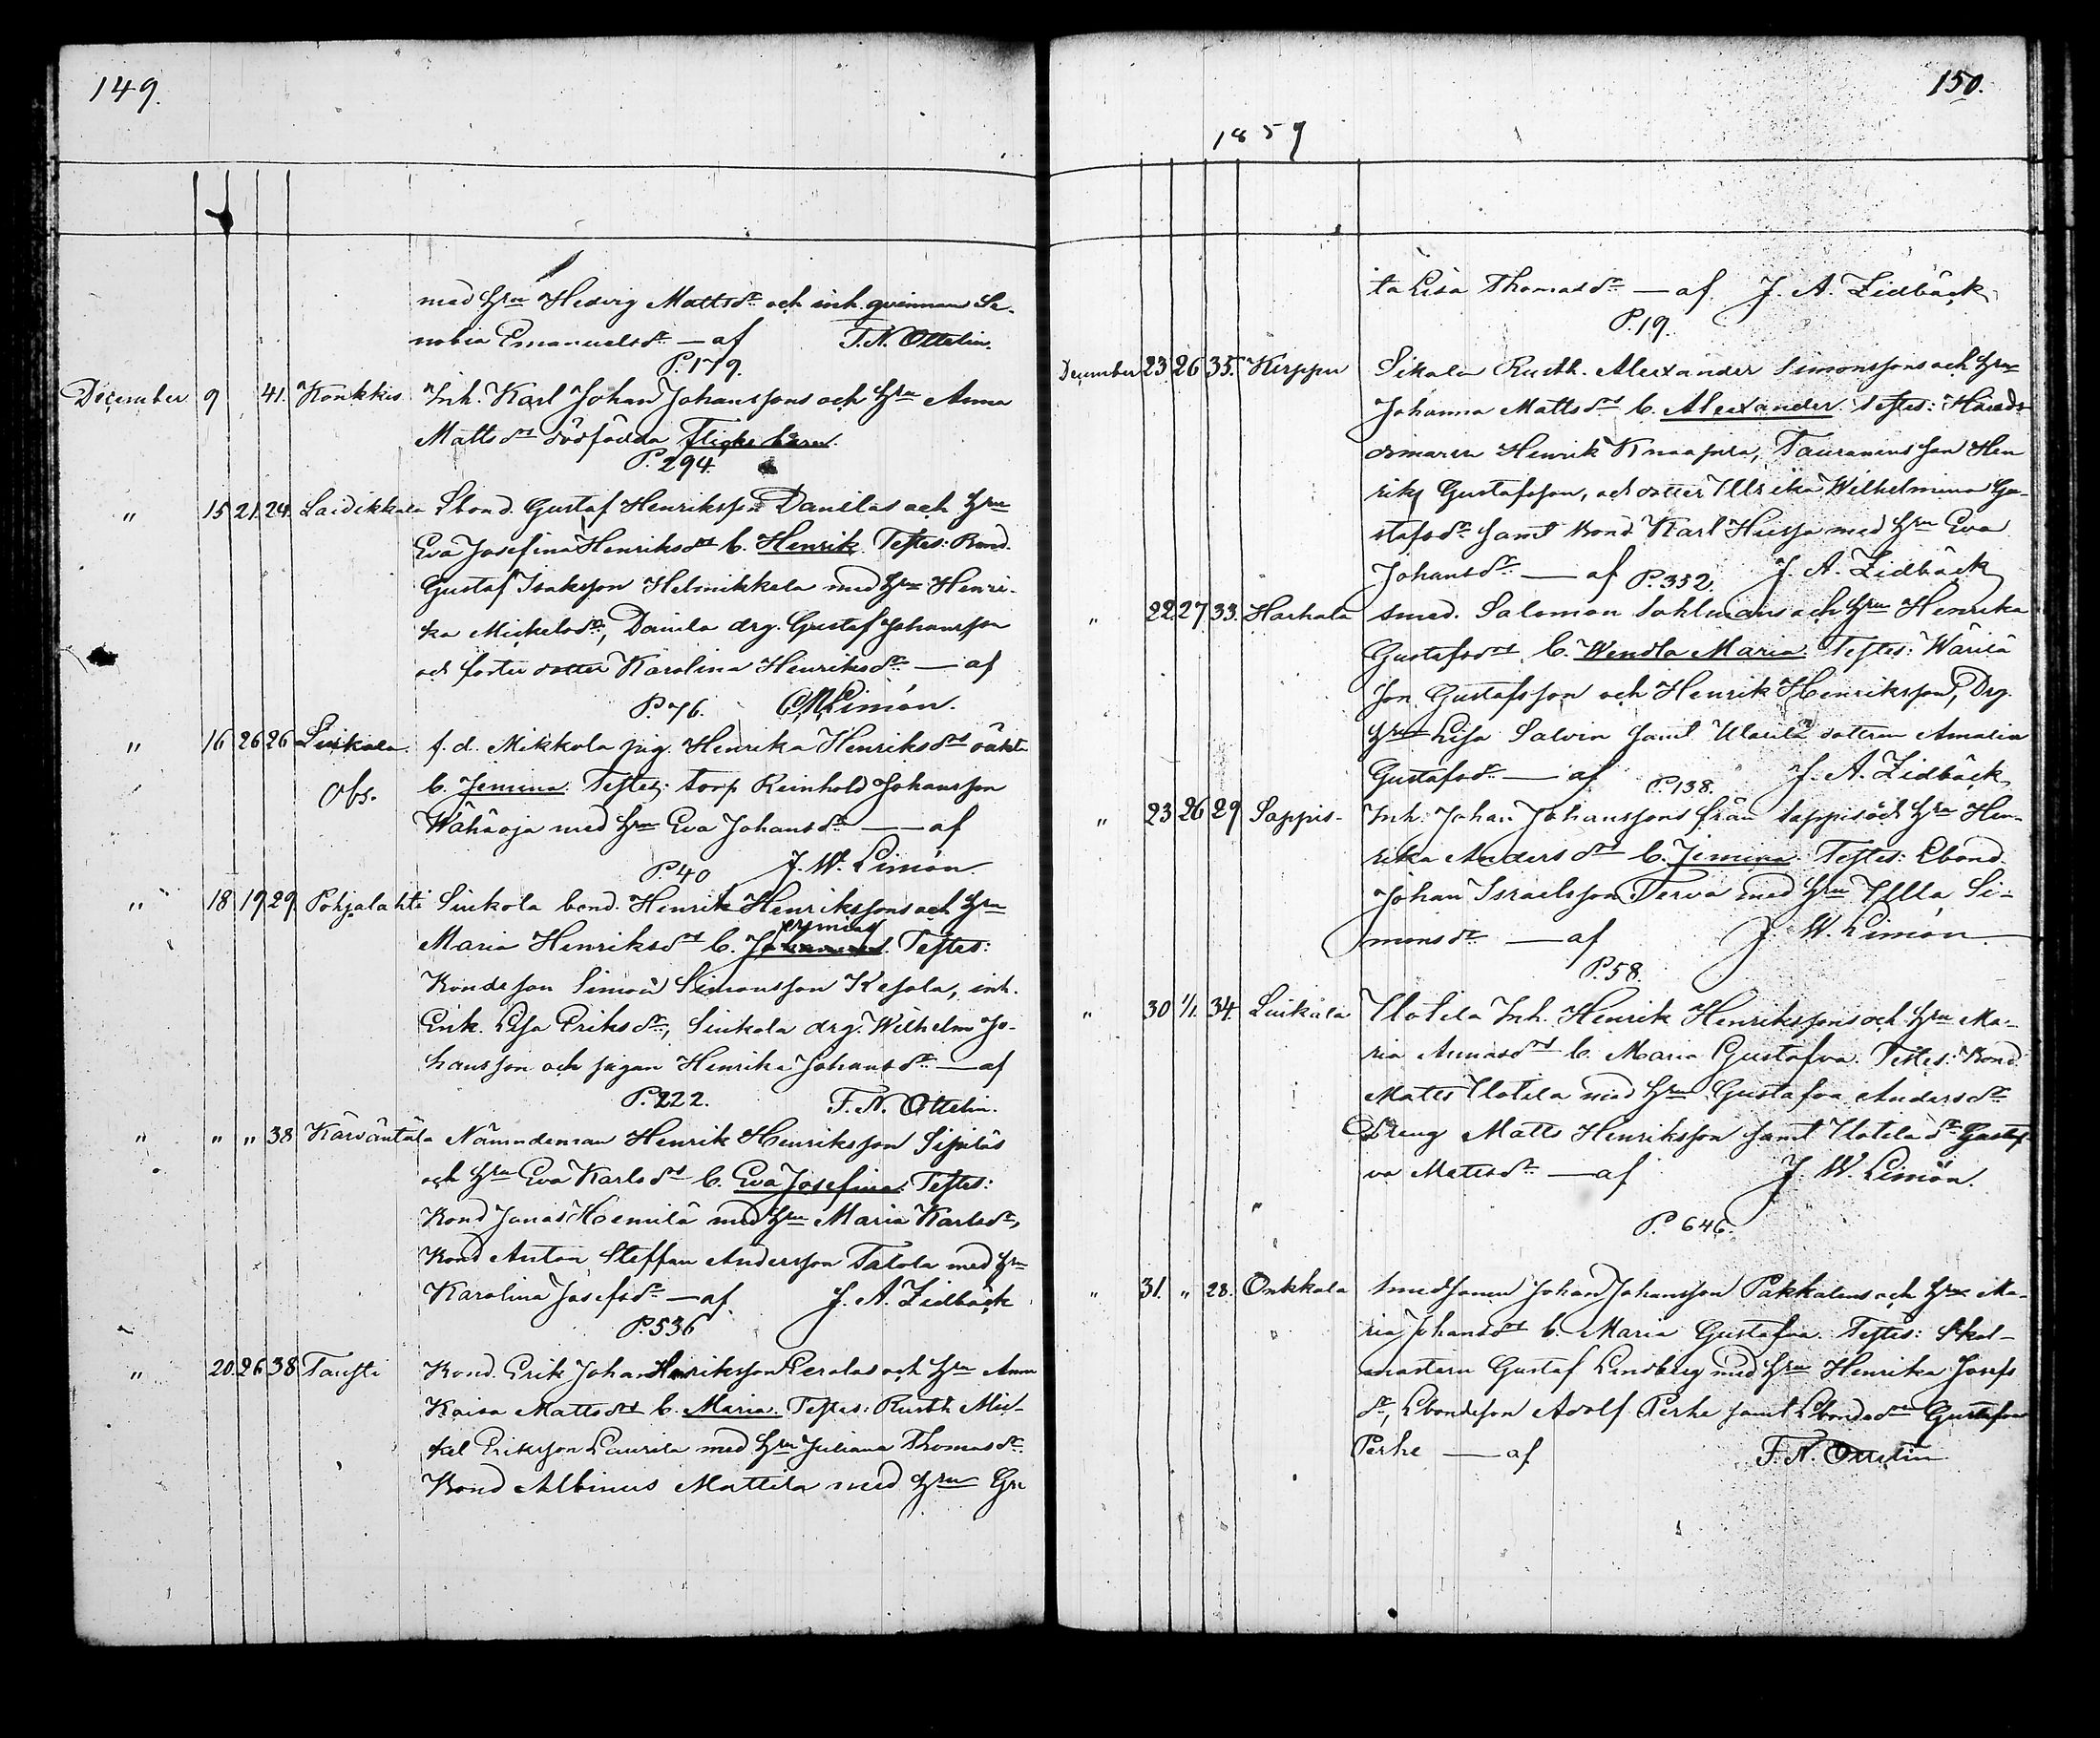 149.
med hru Hedvig Mattsdr och inh. qvinnan Se-
nobia Emanuelsdr — af F. N. Ottelin.
P. 179.
December 9 41. Konkkis Inh. Karl Johan Johanssons och hru Anna
Mattsdrs dödfödda flicke barn.
P. 294.
" 15 21. 24. Laidikkala Lbond. Gustaf Henriksson Danilas och hru
Eva Josefina Henriksdrs b. Henrik. Testes: Bond.
Gustaf Isaksson Helmikkala med hru Henri-
ka Mickelsdr, Danila drg. Gustaf Johansson
och foster dotter Karolina Henriksdr — af
P. 76. Limón.
" 16 26 26 Liukala f. d. Mikkola pig. Henrika Henriksdrs oäkta
Obs. b. Jemina. Testes: torp Reinhold Johansson
Wähäoja med hru Eva Johansdr — af
P. 40 J. W. Limón.
" 18 19 29. Pohjalahti Sirikola bond. Henrik Henrikssons och hru
Maria Henriksdrs b. Testes:
Bondeson Simon Simonsson Kesola, inh.
Enk. Lisa Eriksdr, Sirikola drg. Wilhelm Jo-
hansson och pigan Henrika Johansdr — af
P. 222. F. N. Ottelin.
" " " 38 Kärväntälä Nämndeman Henrik Henriksson Sipiläs
och hru Eva Karlsdrs b. Eva Josefina. Testes:
Bond Jonas Hemilä med hru Maria Karlsdr,
Bond Anton Steffan Andersson Tatola med hru
Karolina Josefsdr — af J. A. Zidbäck
P. 536
" 20. 26 38 Tausti Bond. Erik Johan Henriksson Peralas och hru Anna
Kaisa Mattsdrs b. Maria. Testes: Rusth Mic-
kel Eriksson Laurila med hru Juliana Thomasdr.
Bond Albinus Mattila med hru Gre
150.
1859
ta Lisa Thomasdr — af J. A. Zidbäck
P. 19.
December 23 26 35. Kirppu Sikala Rusth. Alexander Simonssons och hru
Johanna Mattsdrs b. Alexander. Testes: Härads-
domaren Henrik Knaapila, Tauranens son Hen
rik Gustafsson, och dotter Ulrika Wilhelmina Gu-
stafsdr samt Bond Karl Hussa med hru Eva
Johansdr — af P. 352 J. A. Zidbäck
" 22. 27. 33. Harhala Smed. Salomon Sahlmans och hru Henrika
Gustafsdrs b. Wendla Maria. Testes: Wärilä
son Gustafsson och Henrik Henriksson, Drg.
hru Lisa Salvin samt Ularilä dottern Amalia
Gustafsdr — af P. 138. J. A. Zidbäck
" 23 26 29 Sappis- Inh. Johan Johanssons från Sappis och hru Hen-
rika Andersdrs b. Jemina. Testes: Lbond.
Johan Israelsson Terva med hru Ulla Si-
monsdr — af J. W. Limón.
P. 58.
" 30 1/1. 34. Liukala Uotila Inh. Henrik Henrikssons och hru Ma-
ria Annasdrs b. Maria Gustafva. Testes: Bond.
Matts Uotila med hru Gustafva Andersdr
Dreng Matts Henriksson samt Uotila dr Gustaf-
va Mattsdr — af J. W. Limón.
P. 646.
" 31. " 28. Onkkala Smedsonen Johan Johansson Pakkalas och hru Ma-
ria Johansdrs b. Maria Gustafva. Testes: Skol-
mästern Gustaf Lindberg med hru Henrika Josefs
dr, Lbondeson Adolf Perhe samt Lbondedr Gustafva
Perhe — af F. N. Ottelin